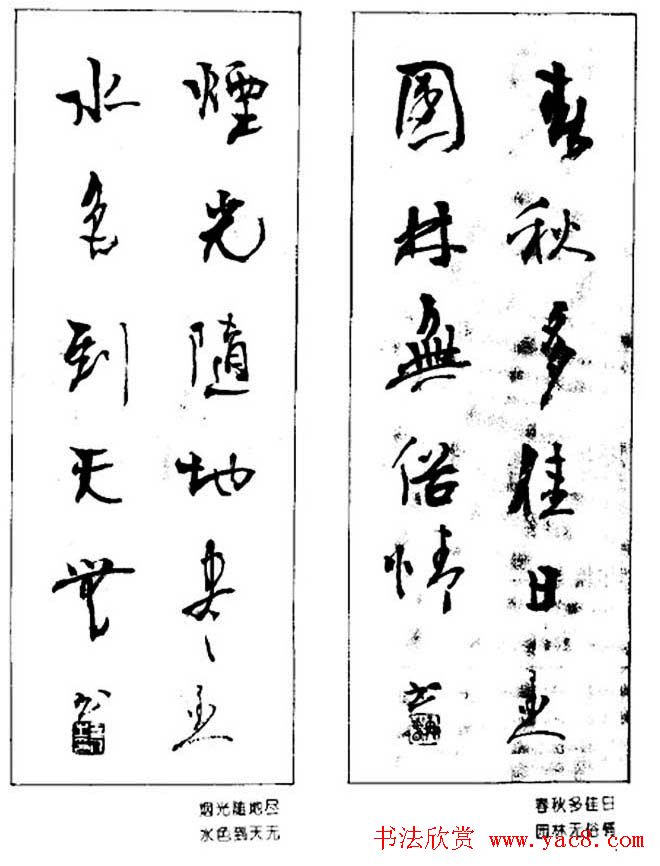 春秋多佳日
園林無俗情
煙光隨地尽
水色到天無
书
烟光随地尽
水色到天无
春秋多佳日
园林无俗情
书法欣赏 www.yac8.com